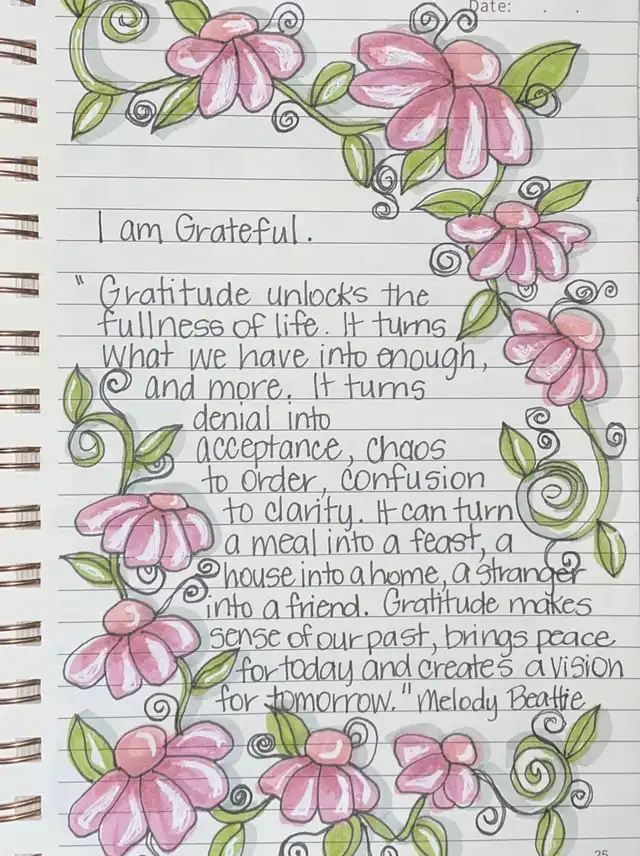 Date: . .
I am Grateful.
"Gratitude unlocks the
fullness of life. It turns
what we have into enough,
and more. It turns
denial into
acceptance, chaos
to order, confusion
to clarity. It can turn
a meal into a feast, a
house into a home, a stranger
into a friend. Gratitude makes
sense of our past, brings peace
for today and creates a vision
for tomorrow." Melody Beattie
25